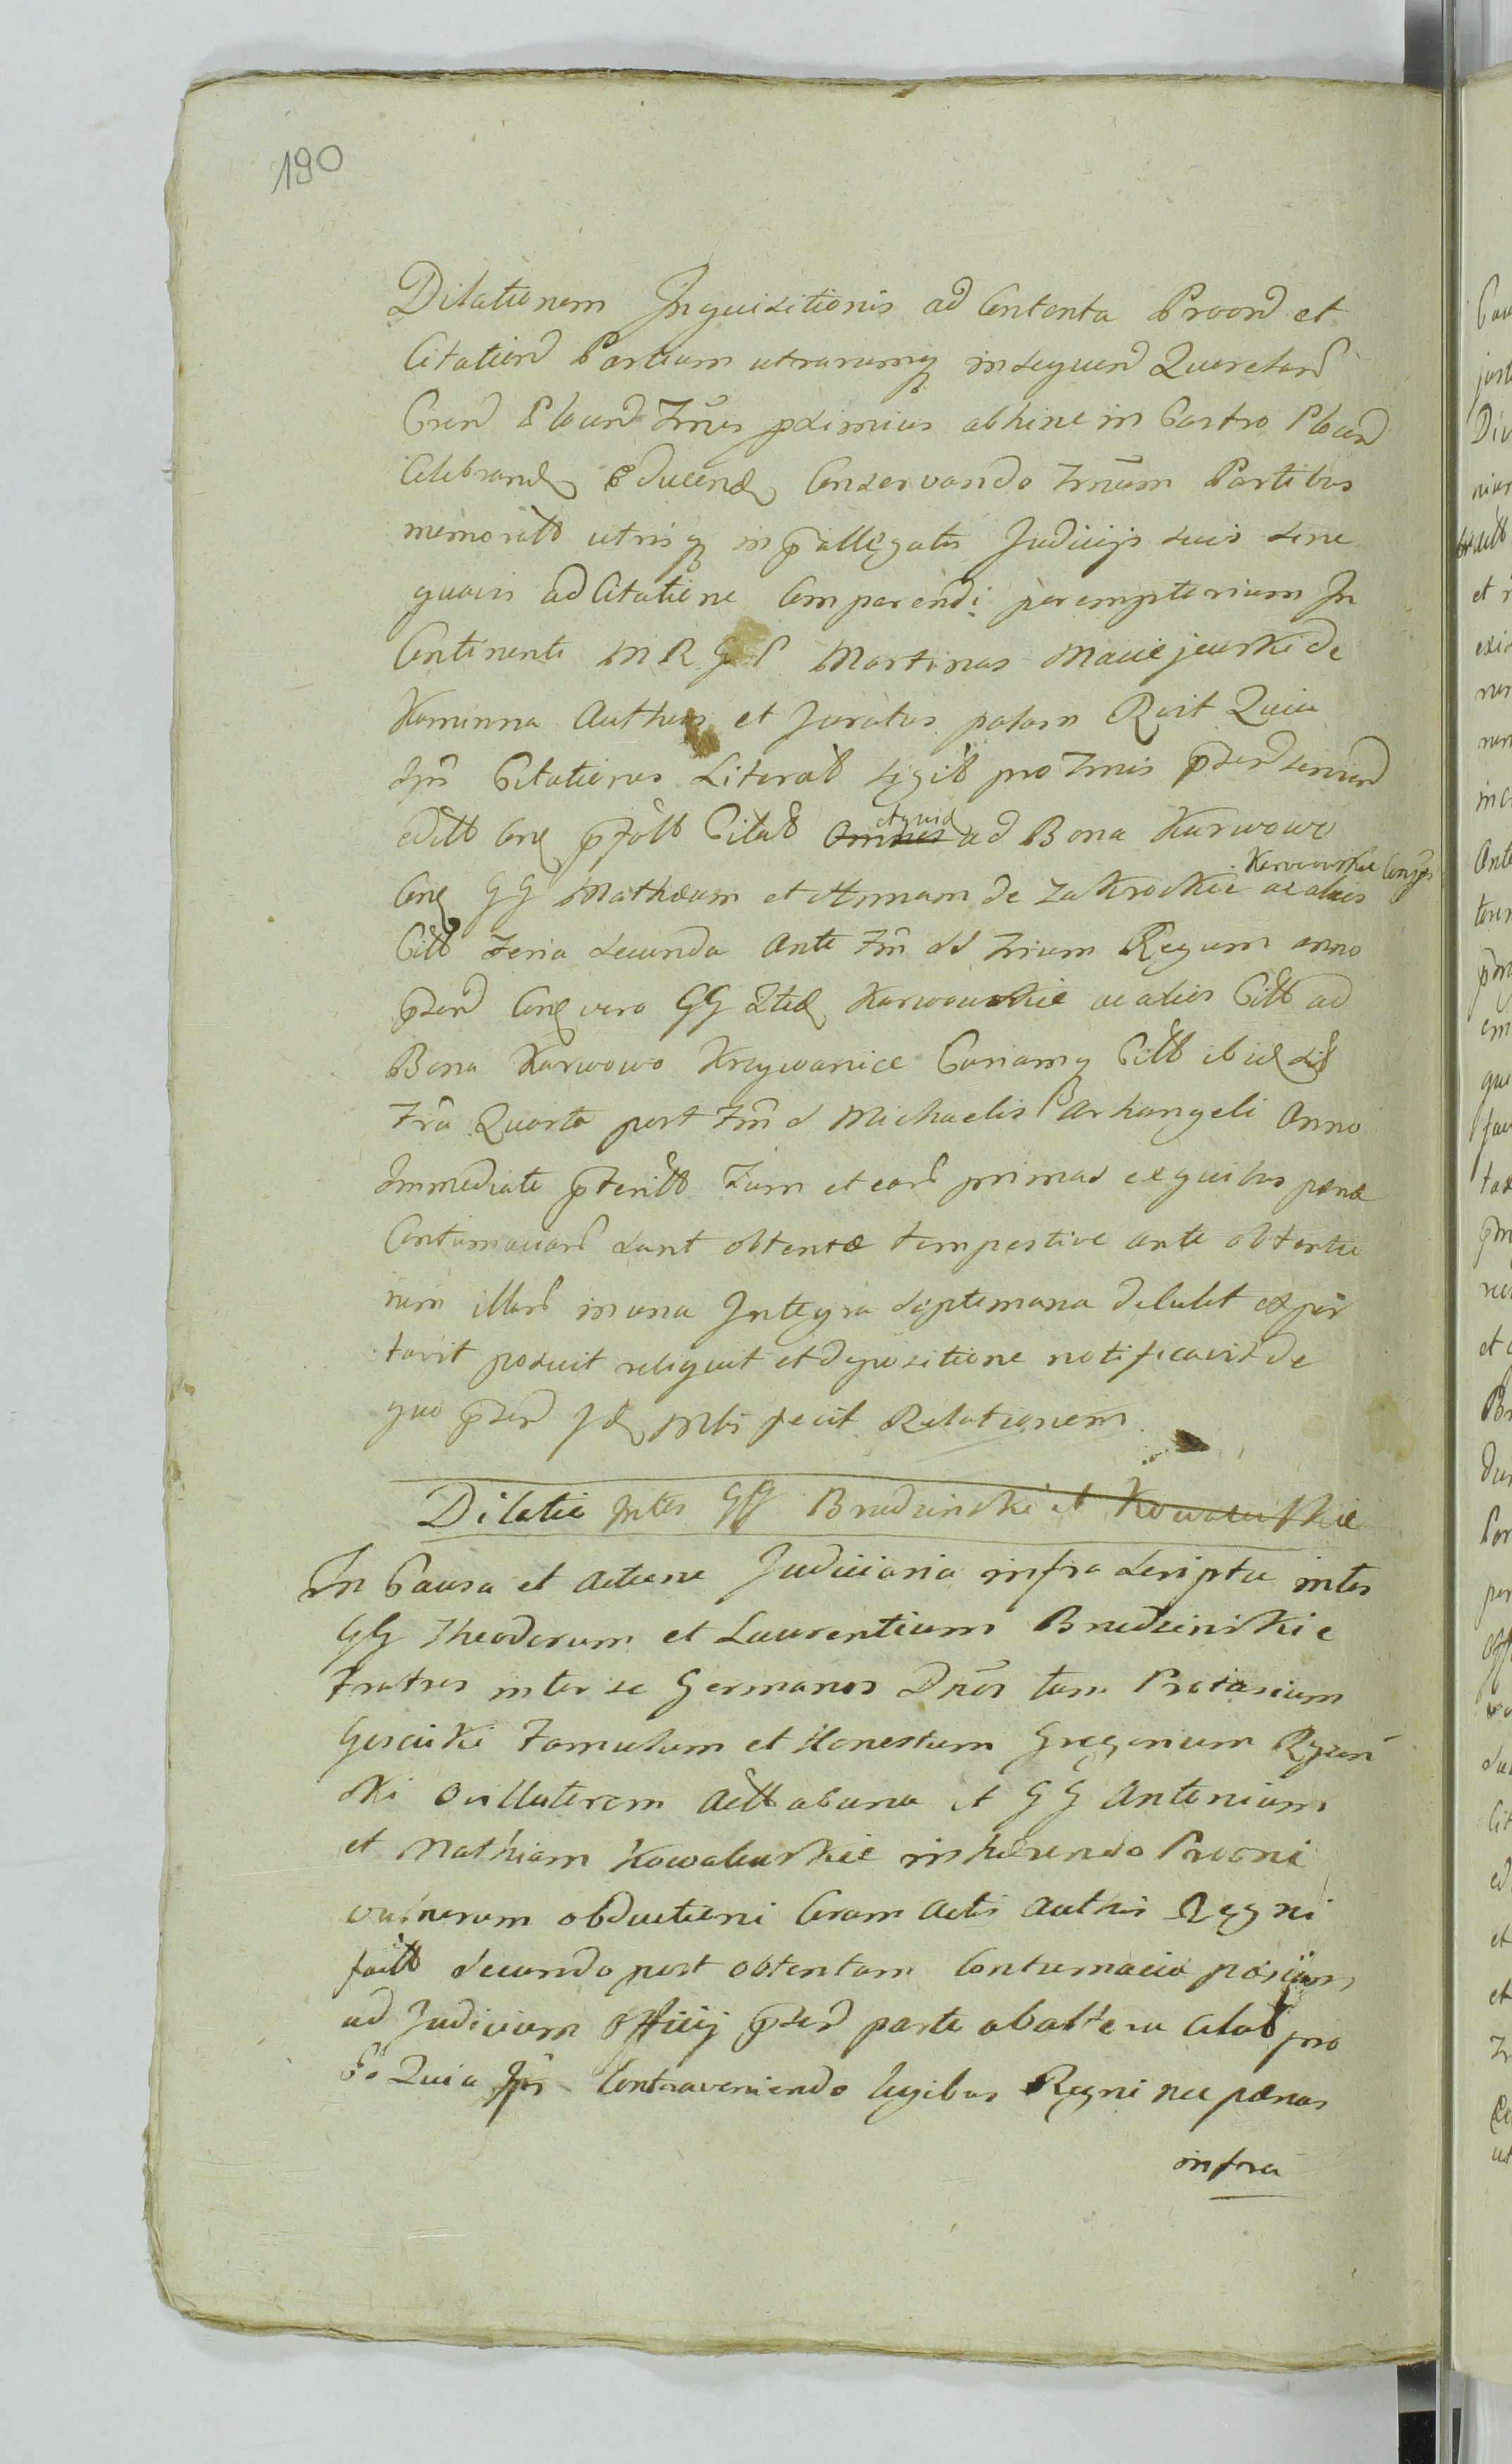 190
Dilationem Inquisitionis ad Contenta Proon et
Citation Partium utrarumq insequen Querelar
Cren Plocen Tmis pximius abhinc in Castro Plocen
Celebrand educend Conservando Tmum Partibus
memoratt utrisq in pallegatis Judicijs suis sine
quavis adCitatione Comparendi peremptorium In
Continenti M R G P Martinus Maciejewski de
Kaminna Authus et Juratus palam Rvit Quia
Ips Citationes Literatt sigitt pro Tmis pnsen
editt Con Citatt Omnes etquid ad Bona Karwowo
Con GG Mathæum et Annam de Zakrockie Karwowskie Conjges ac alios
Citt Feria secunda Ante Fm SS Trium Regum anno
pnsen Con vero GG Karwowskie ac alios Citt ad
Bona Karwowo Krzywanice Coniamq Citt ibid
Fria Quarta post Fm S Michaelis Arhangeli Anno
Immediate pterito Tum et ear primas ex quibus pænæ
Contumaciar sunt obtentæ tempestive ante obtentio
nem illar in una Integra septimana
tavit posuit reliquit et depositione notificavit de
quo pnsen Jd Mtri fecit Relationem
Dilatio Inter GG Brudzinskie et Kowalewskie
In Causa et Actione Judiciaria infra scripta inter
GG Theodorum et Laurentium Brudzinskie
Fratres inter se Germanos Dnos tum Protasium
Gosciski Famulum et Honestum Gregorium Ryzin
ski Ovillatorem Actt ab una et GG Antonium
et Mathiam Kowalewskie inhærendo Prooni
vulnerum obductioni Coram Actis Authis Regni
factt secundo post obtentam Contumaciæ pænam
ad Judicium Officij pnsen parte ab altera Citatt pro
Eo Quia Ips Contraveniendo legibus Regni nec pænas
infra